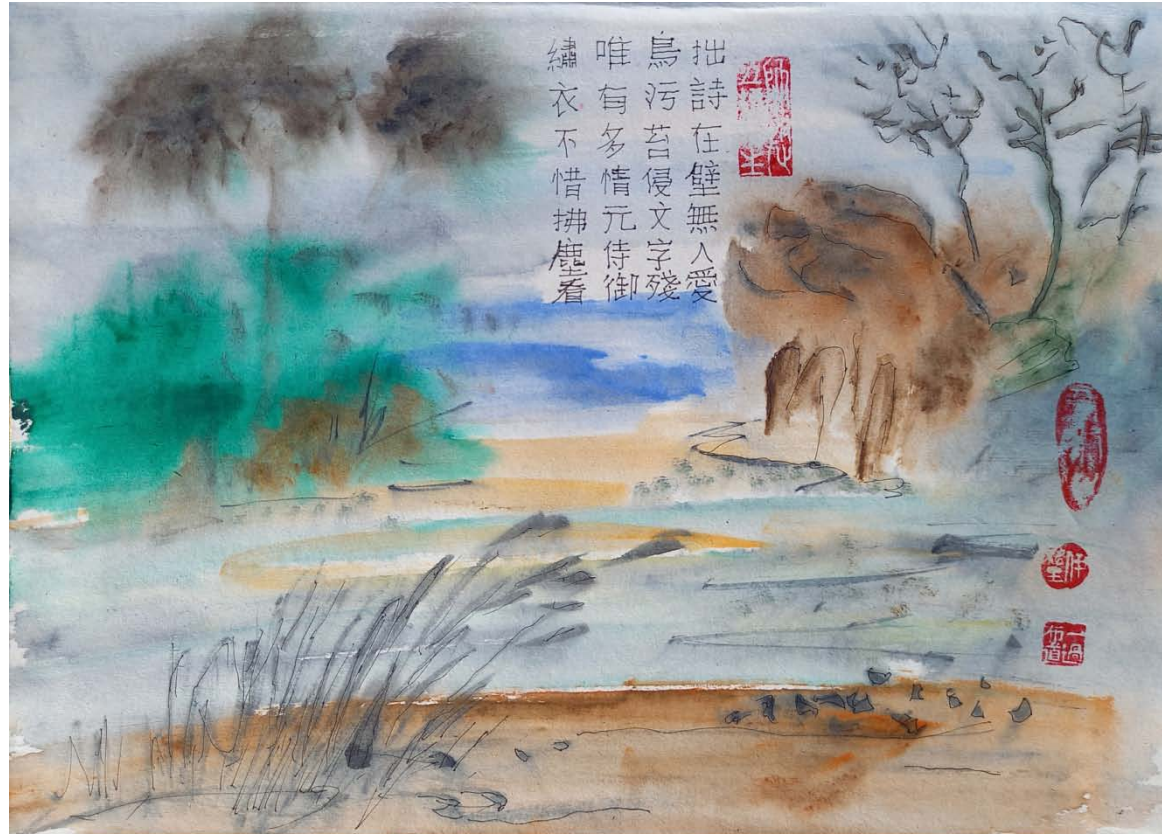 拙詩在壁無人愛
鳥污苔侵文字殘
唯有多情元侍御
繡衣不惜拂塵看